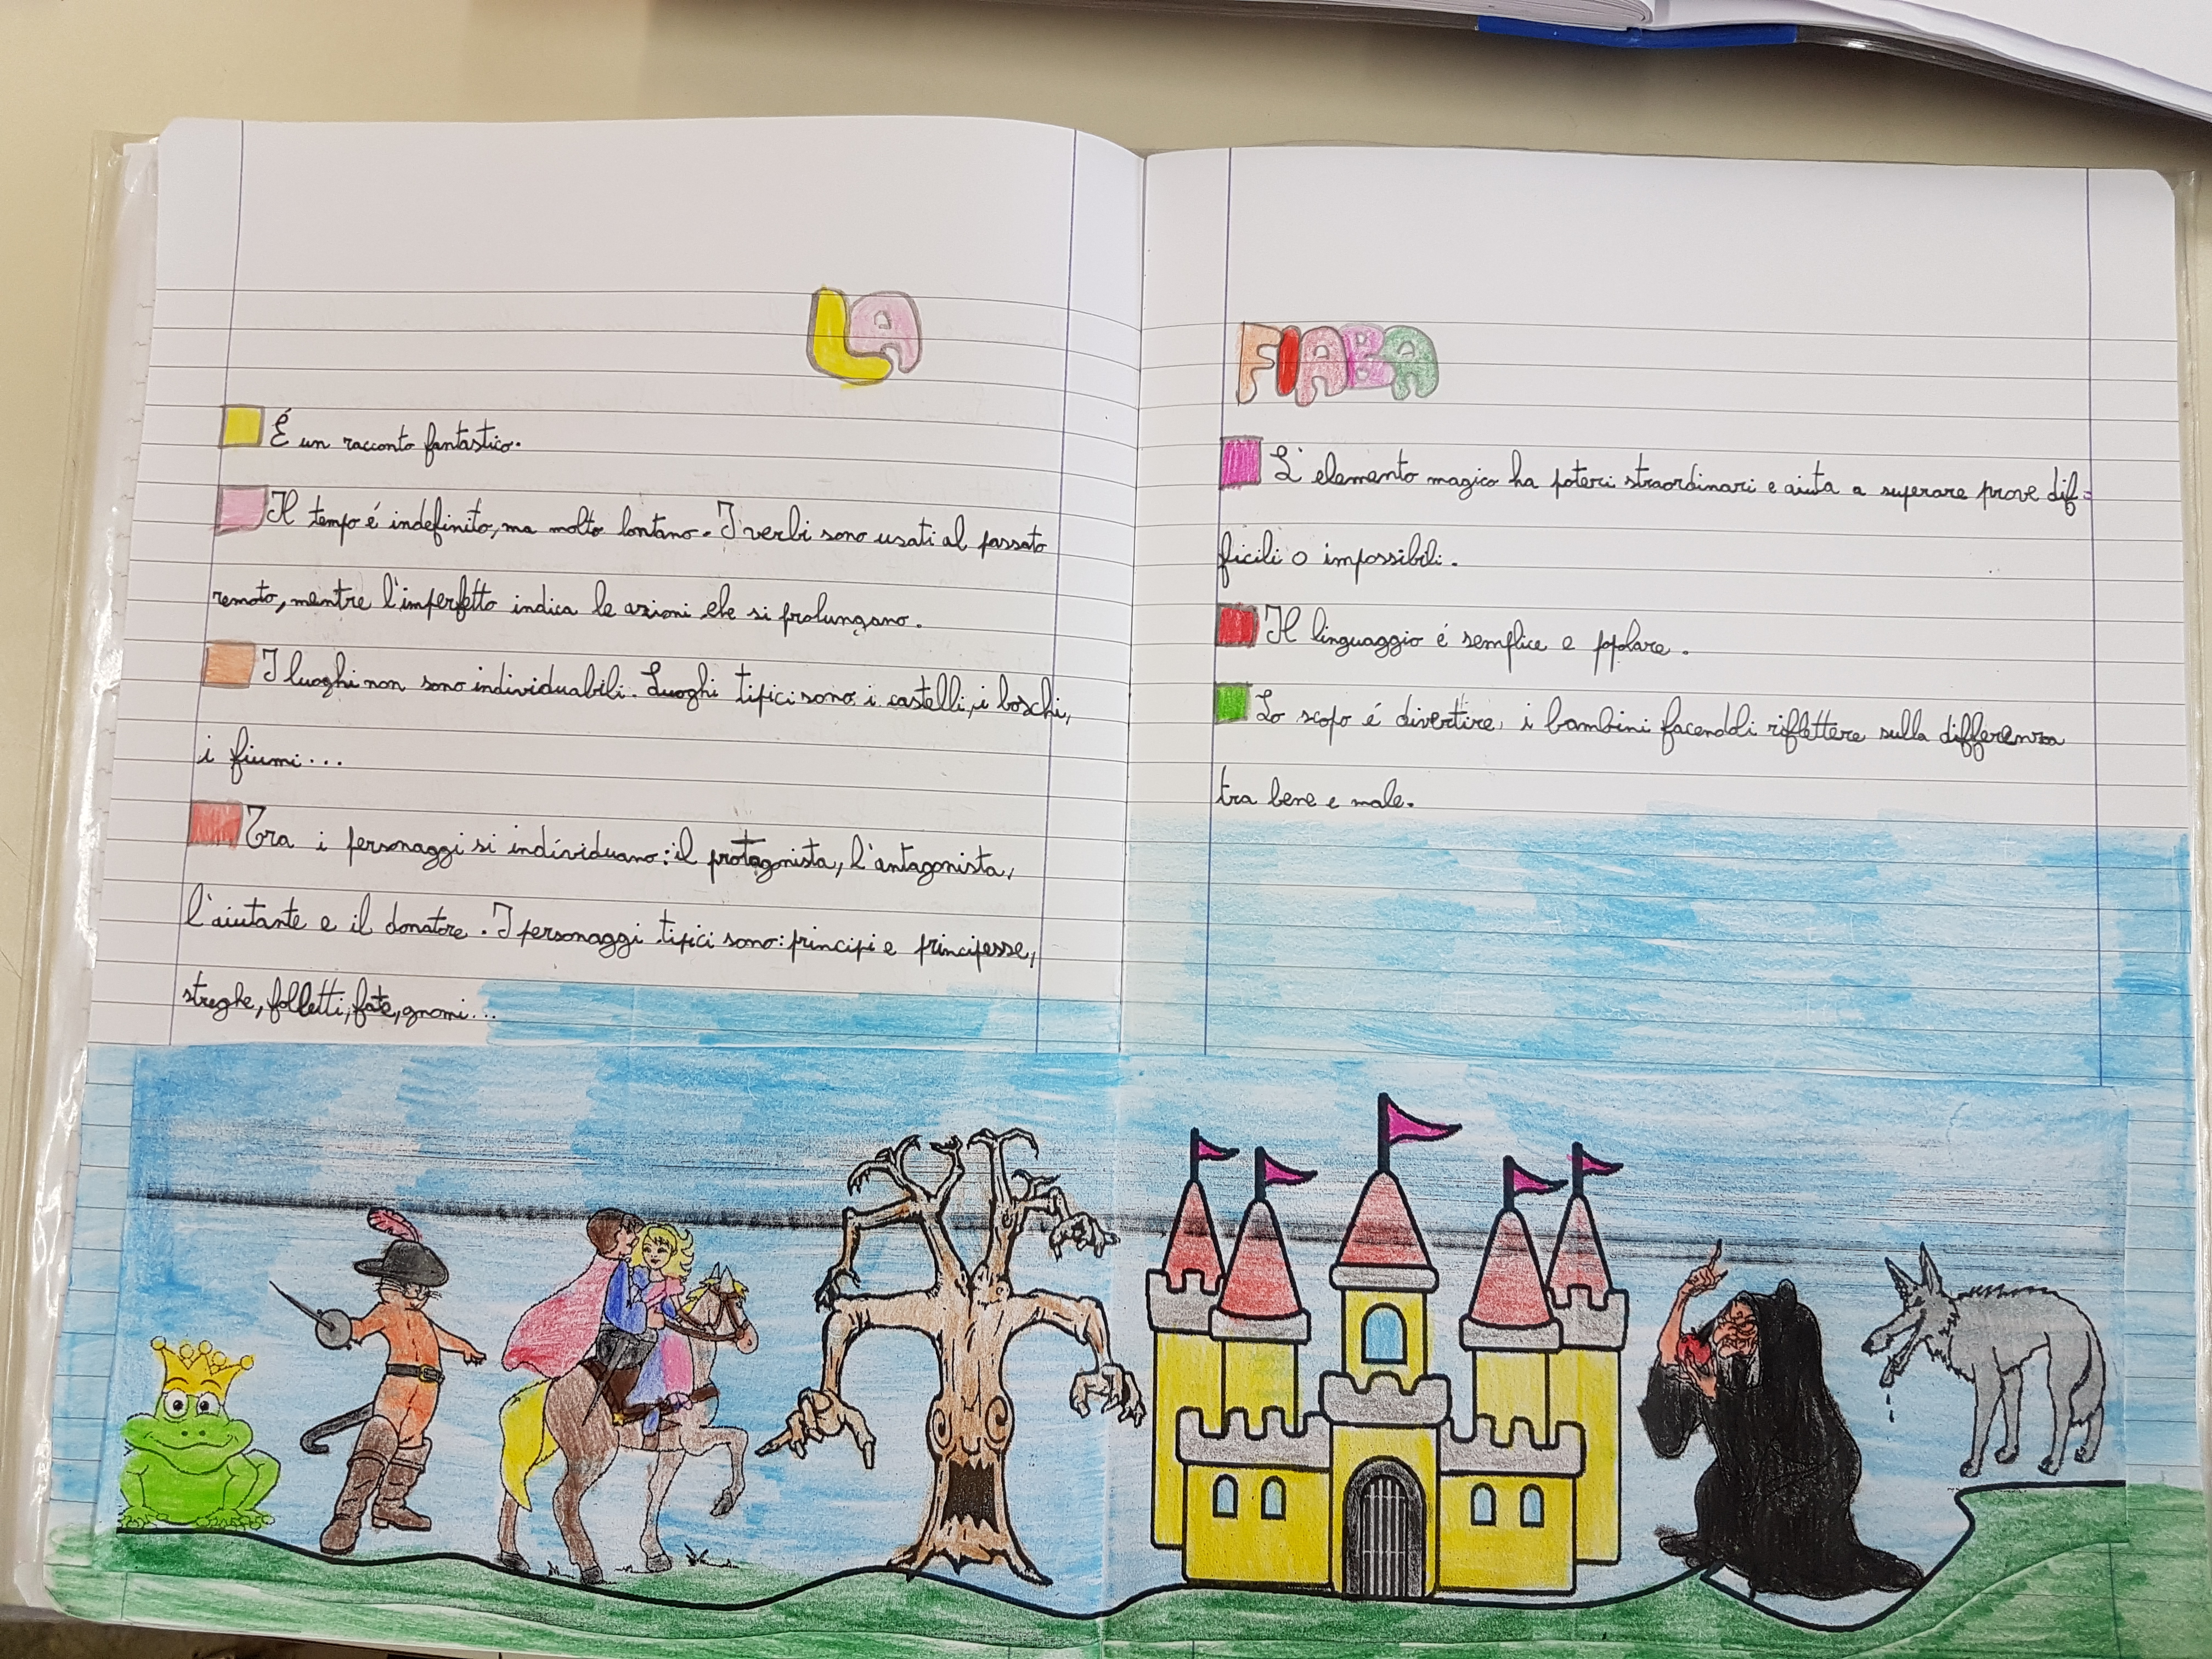 LA
É un racconto fantastico.
Il tempo é indefinito, ma molto lontano. I verbi sono usati al passato
remoto, mentre l'imperfetto indica le azioni che si prolungano.
I luoghi non sono individuabili. Luoghi tipici sono: i castelli, i boschi,
i fiumi...
Tra i personaggi si individuano: il protagonista, l'antagonista,
l'aiutante e il donatore. I personaggi tipici sono: principi e principesse,
streghe, folletti, fate, gnomi...
FIABA
L'elemento magico ha poteri straordinari e aiuta a superare prove dif=
ficili o impossibili.
Il linguaggio é semplice e popolare.
Lo scopo é divertire i bambini facendoli riflettere sulla differenza
tra bene e male.